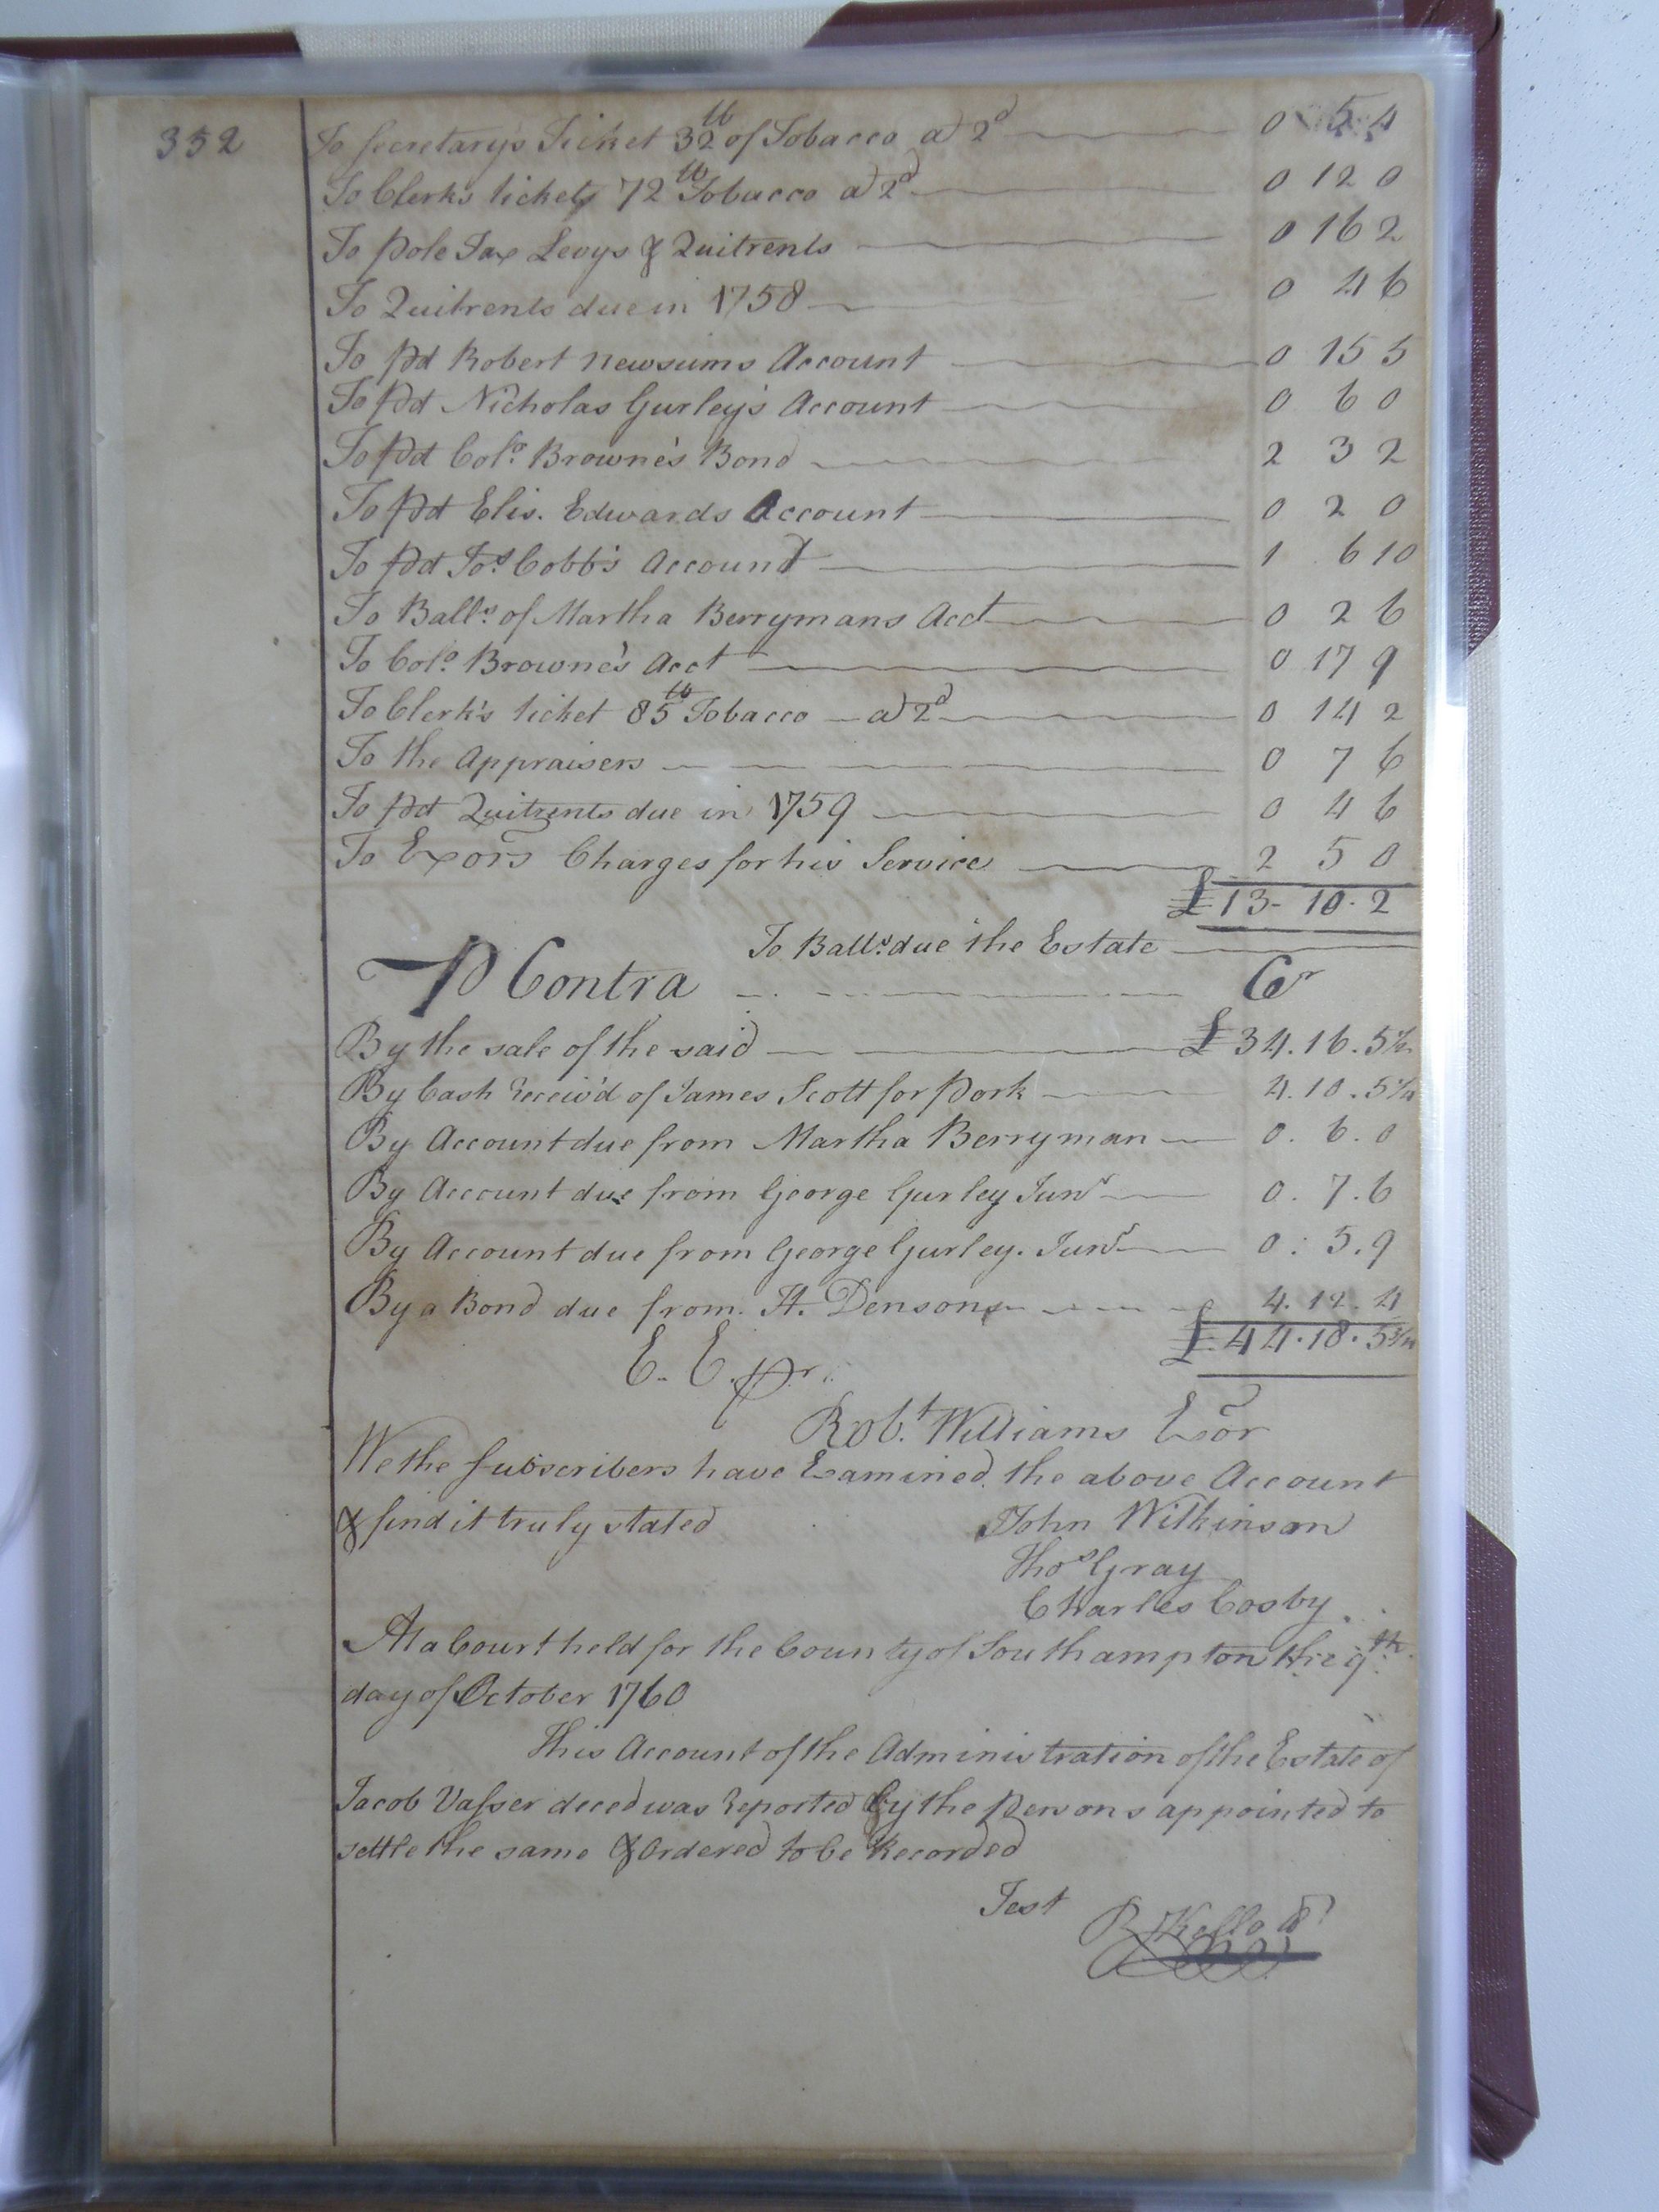 352
To Secretarys Ticket 32 lb of Tobacco a 2d 0 5 4
To Clerks tickets 72 lb Tobacco a 2d 0 12 0
To Pole Tax Levys & Quitrents 0 16 2
To Quitrents due in 1758 0 4 6
To pd Robert Newsums Account 0 15 5
To pd Nicholas Gurley's Account 0 6 0
To pd Colo. Browne's Bond 2 3 2
To pd Elis. Edwards Account 0 2 0
To pd Jos. Cobb's Account 1 6 10
To Balle. of Martha Berrymans Acct 0 2 6
To Colo. Browne's Acct 0 17 9
To Clerk's ticket 85 lb Tobacco a 2d 0 14 2
To the Appraisers 0 7 6
To pd Quitrents due in 1759 0 4 6
To Exors Charges for his Service 2 5 0
£13-10.2
To Balle. due the Estate
P Contra Cr
By the sale of the said £34.16.5½
By Cash Receiv'd of James Scott for Pork 4.10.5¼
By Account due from Martha Berryman 0.6.0
By Account due from George Gurley Junr 0.7.6
By Account due from George Gurley. Junr 0:5.9
By a Bond due from. A. Densons 4.12.4
£44.18.5¾
E. E. pr.
Robt. Williams Exor
We the Subscribers have Examined the above Account
& find it truly stated John Wilkinson
Thos Gray
Charles Cosby.
At a Court held for the County of Southampton the 9th.
day of October 1760
This Account of the Administration of the Estate of
Jacob Vasser deced was Reported by the Persons appointed to
settle the same & Ordered to be Recorded
Test R Kello